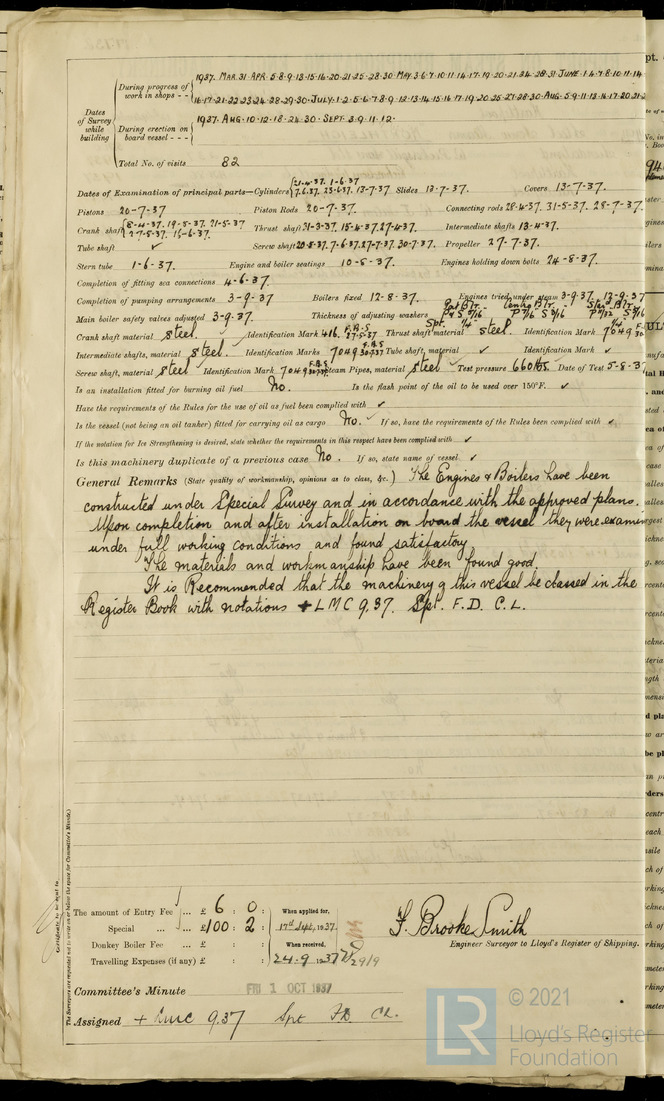 During progress of work in shops - - 1937. MAR. 31 APR. 5·8·9·13·15·16·20·21·25·28·30 MAY. 3·6·7·10·11·14·17·19·20·21·24·28·31 JUNE·1·4·7·8·10·11·14
16·17·21·22·23·24·28·29·30·JULY·1·2·5·6·7·8·9·12·13·14·15·16·17·19·20·26·27·28·30·AUG·5·9·11·13·16·17·20·21
Dates of Survey while building
During erection on board vessel - - - 1937. AUG·10·12·18·24·30· SEPT. 3·9·11·12·
Total No. of visits 82
Dates of Examination of principal parts—Cylinders 21-4-37. 1-6-37 7.6.37. 23-6-37. 13-7-37. Slides 13-7-37. Covers 13-7-37.
Pistons 20-7-37 Piston Rods 20-7-37. Connecting rods 28-4-37. 31-5-37. 28-7-37.
Crank shaft 8-4-37. 19-5-37. 21-5-37 27-5-37. 16-6-37. Thrust shaft 31-3-37. 15-4-37. 27-4-37. Intermediate shafts 13-4-37.
Tube shaft ✓ Screw shaft 20-5-37. 7-6-37. 27-7-37. 30-7-37. Propeller 27-7-37.
Stern tube 1-6-37. Engine and boiler seatings 10-8-37. Engines holding down bolts 24-8-37.
Completion of fitting sea connections 4-6-37.
Completion of pumping arrangements 3-9-37 Boilers fixed 12-8-37. Engines tried under steam 3-9-37. 12-9-37
Main boiler safety valves adjusted 3-9-37. Thickness of adjusting washers
Crank shaft material steel. Identification Mark 416. F.R.S 27-5-37 Thrust shaft material steel. Identification Mark 7049
Intermediate shafts, material steel. Identification Marks 7049 F.R.S Tube shaft, material ✓ Identification Mark ✓
Screw shaft, material steel Identification Mark 7049 F.R.S Steam Pipes, material steel Test pressure 660 lbs Date of Test 5-8-37
Is an installation fitted for burning oil fuel No. Is the flash point of the oil to be used over 150°F. ✓
Have the requirements of the Rules for the use of oil as fuel been complied with ✓
Is the vessel (not being an oil tanker) fitted for carrying oil as cargo No. ✓ If so, have the requirements of the Rules been complied with ✓
If the notation for Ice Strengthening is desired, state whether the requirements in this respect have been complied with ✓
Is this machinery duplicate of a previous case No. If so, state name of vessel ✓
General Remarks (State quality of workmanship, opinions as to class, &c.) The Engines & Boilers have been
constructed under Special Survey and in accordance with the approved plans.
Upon completion and after installation on board the vessel they were examin
under full working conditions and found satisfactory
The materials and workmanship have been found good.
It is Recommended that the machinery of this vessel be classed in the
Register Book with notations + LMC 9.37. Spt. F.D. C.L.
The Surveyors are requested not to write on or below the space for Committee's Minute.)
Certificate to be sent to
The amount of Entry Fee ... £ 6 : 0 : When applied for,
Special ... £100 : 2 : 17th Sept. 1937.
Donkey Boiler Fee ... £ : : When received,
Travelling Expenses (if any) £ : : 24-9 1937 29/9
F. Brooke Smith
Engineer Surveyor to Lloyd's Register of Shipping.
Committee's Minute FRI 1 OCT 1937
Assigned + LMC 9.37 Spt FD CL.
LR © 2021
Lloyd's Register
Foundation